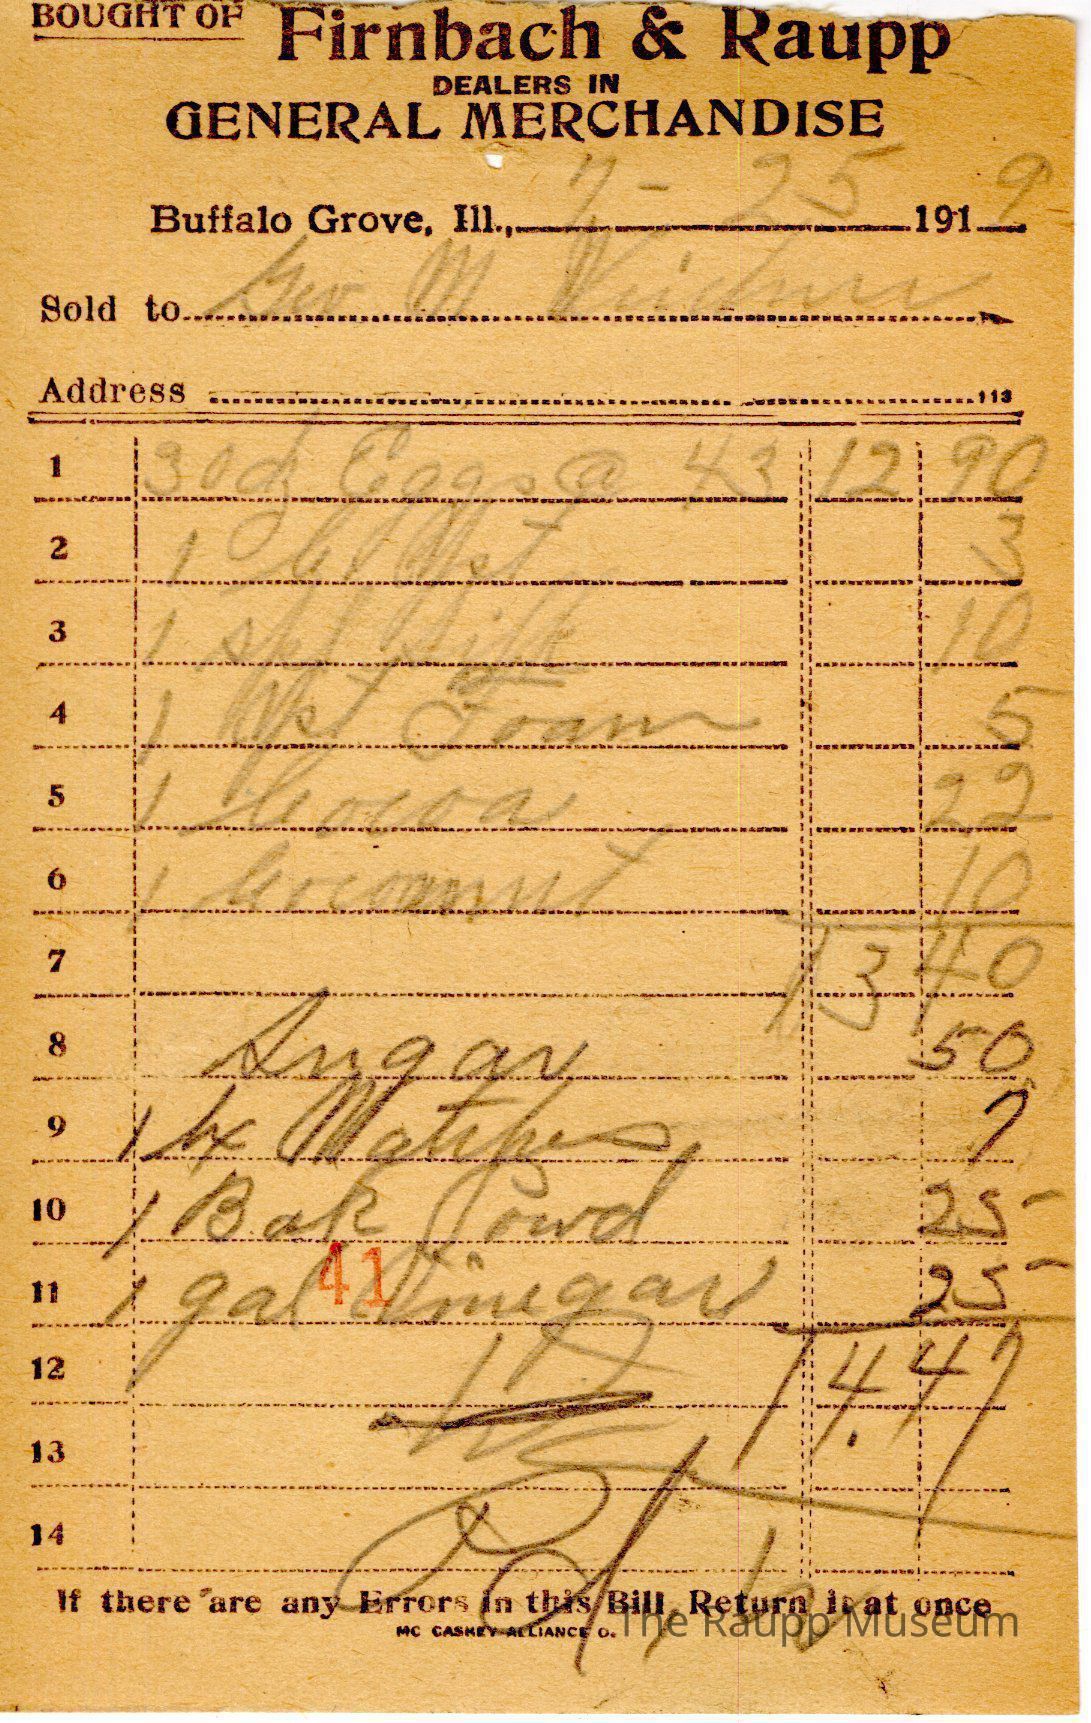 BOUGHT OF Firnbach & Raupp
DEALERS IN
GENERAL MERCHANDISE
Buffalo Grove, Ill., 7-25 1919
Sold to Geo M Weidner
Address 113
1 30 dz Eggs @ 43 12 90
2 1 3
3 1 10
4 1 Yst Foam 5
5 1 Cocoa 22
6 1 Cocoanut 10
7 13 40
8 Sugar 50
9 1 bx Matches 7
10 1 Bak Powd 25
11 1 gal Vinegar 25
41
12 14.47
13
14
If there are any Errors in this Bill, Return it at once
MC CASKEY ALLIANCE O.
The Raupp Museum